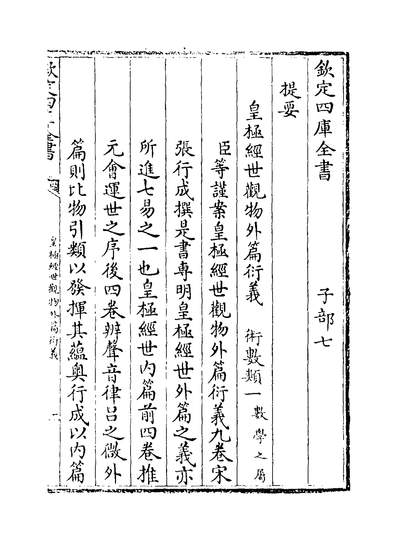 欽定四庫全書　子部七
提要
皇極經世觀物外篇衍義　術數類一數學之屬
臣等謹案皇極經世觀物外篇衍義九卷宋
張行成撰是書專明皇極經世外篇之義亦
所進七易之一也皇極經世內篇前四卷推
元會運世之序後四卷辨聲音律吕之微外
篇則比物引類以發揮其蘊奧行成以內篇
欽定四庫全書
皇極經世觀物外篇衍義
一